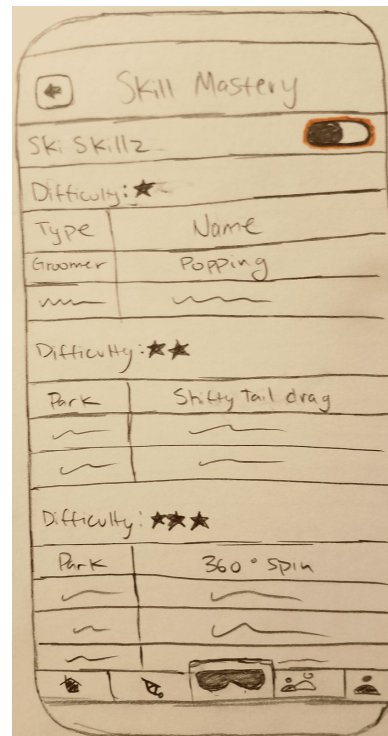 Skill Mastery
Ski Skillz
Difficulty: ★
Type Name
Groomer Popping
Difficulty: ★★
Park Shifty Tail drag
Difficulty: ★★★
Park 360° Spin